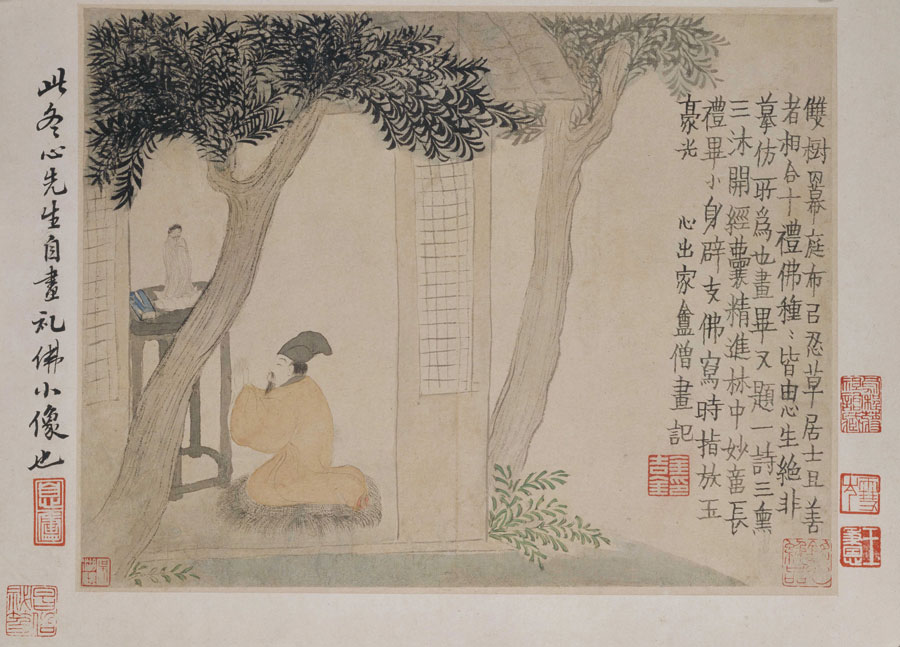 雙樹羃庭布㠯忍草居士且善
者相合十禮佛種〻皆由心生絶非
摹仿所爲也畫畢又題一詩三熏
三沐開經囊精進林中妙長
禮畢小身辟支佛寫時指放五
豪光 心出家盦僧畫記
此冬心先生自畫礼佛小像也